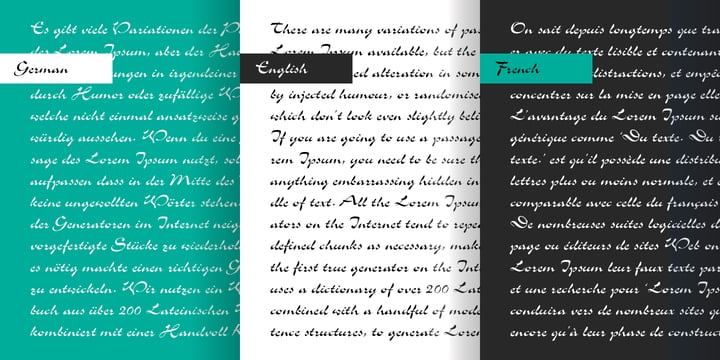 Es gibt viele Variationen der P
der Lorem Ipsum, aber der Ha
German
ungen in irgendeiner
durch Humor oder zufällige W
welche nicht einmal ansatzweise g
würdig aussehen. Wenn du eine
sage des Lorem Ipsum nutzt, sol
aufpassen dass in der Mitte des
keine ungewollten Wörter stehen
der Generatoren im Internet neig
vorgefertigte Stücke zu wiederhol
es nötig machte einen richtigen G
zu entwickeln. Wir nutzen ein W
buch aus über 200 Lateinischen
kombiniert mit einer Handvoll
There are many variations of pas
of Lorem Ipsum available, but the
English
ed alteration in som
by injected humour, or randomise
which don't look even slightly beli
If you are going to use a passage
rem Ipsum, you need to be sure th
anything embarrassing hidden in
dle of text. All the Lorem Ipsum
ators on the Internet tend to repe
defined chunks as necessary, mak
the first true generator on the Int
uses a dictionary of over 200 Lat
combined with a handful of mode
tence structures, to generate Lorem
On sait depuis longtemps que tra
er avec du texte lisible et contenan
French
distractions, et empê
concentrer sur la mise en page elle
L'avantage du Lorem Ipsum su
générique comme 'Du texte. Du t
texte.' est qu'il possède une distribu
lettres plus ou moins normale, et
comparable avec celle du français
De nombreuses suites logicielles d
page ou éditeurs de sites Web on
Lorem Ipsum leur faux texte par
et une recherche pour 'Lorem Ips
conduira vers de nombreux sites
encore qu'à leur phase de construc